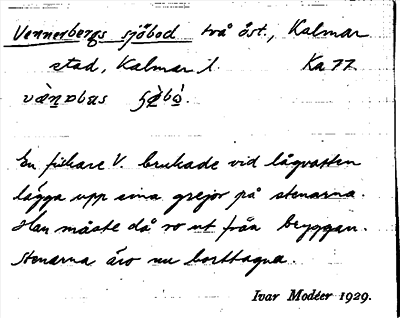 Vennerbergs sjöbod två öst., Kalmar
stad, Kalmar l. Ka 77
En fiskare V. brukade vid lågvatten
lägga upp sina grejor på stenarna.
Han måste då ro ut från bryggan.
Stenarna äro nu borttagna.
Ivar Modéer 1929.